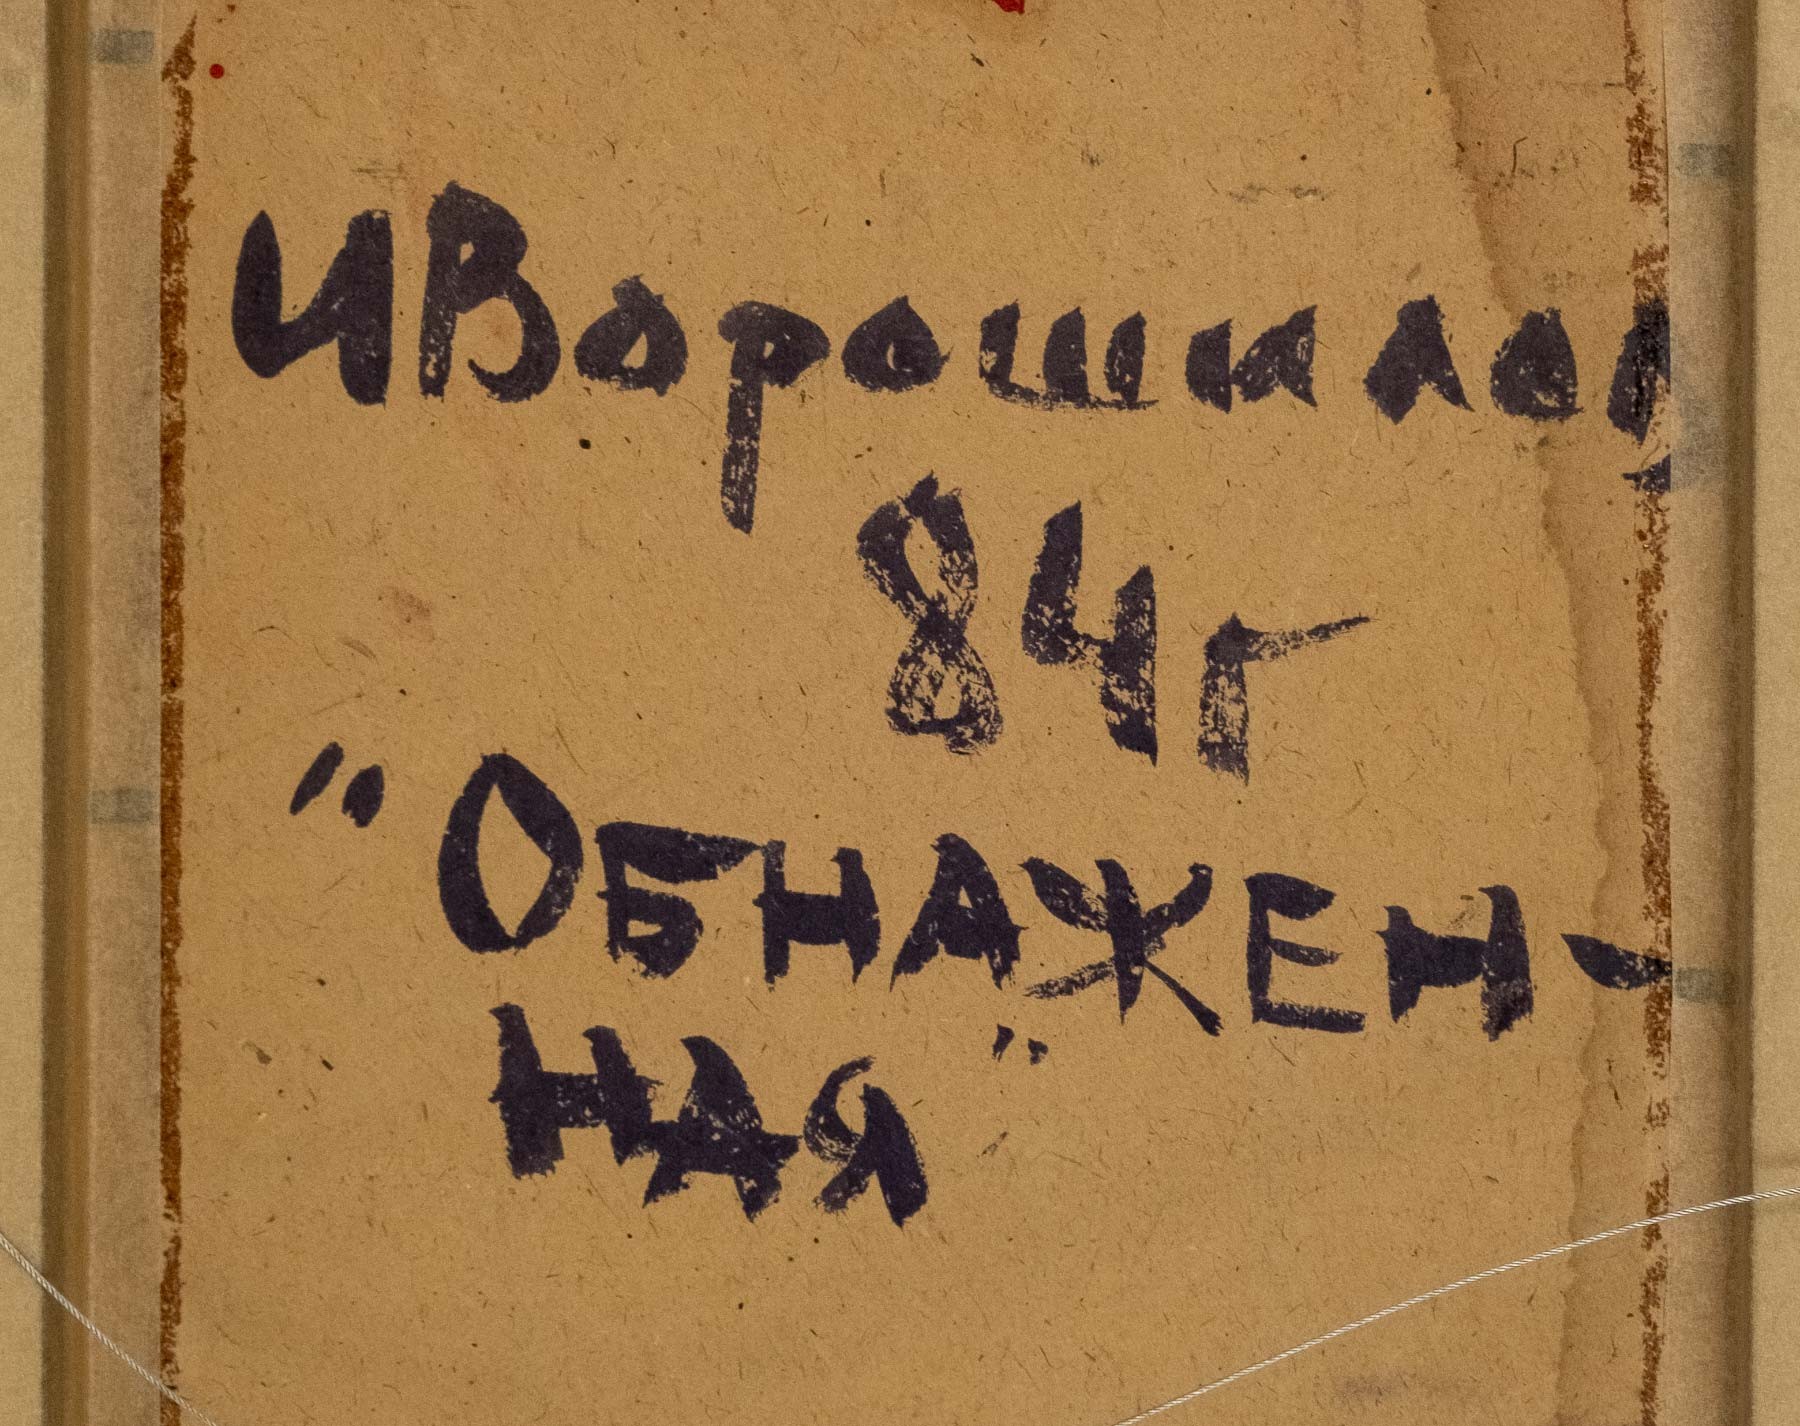 И Ворошилов
84г
"ОБНАЖЕН-
НАЯ"